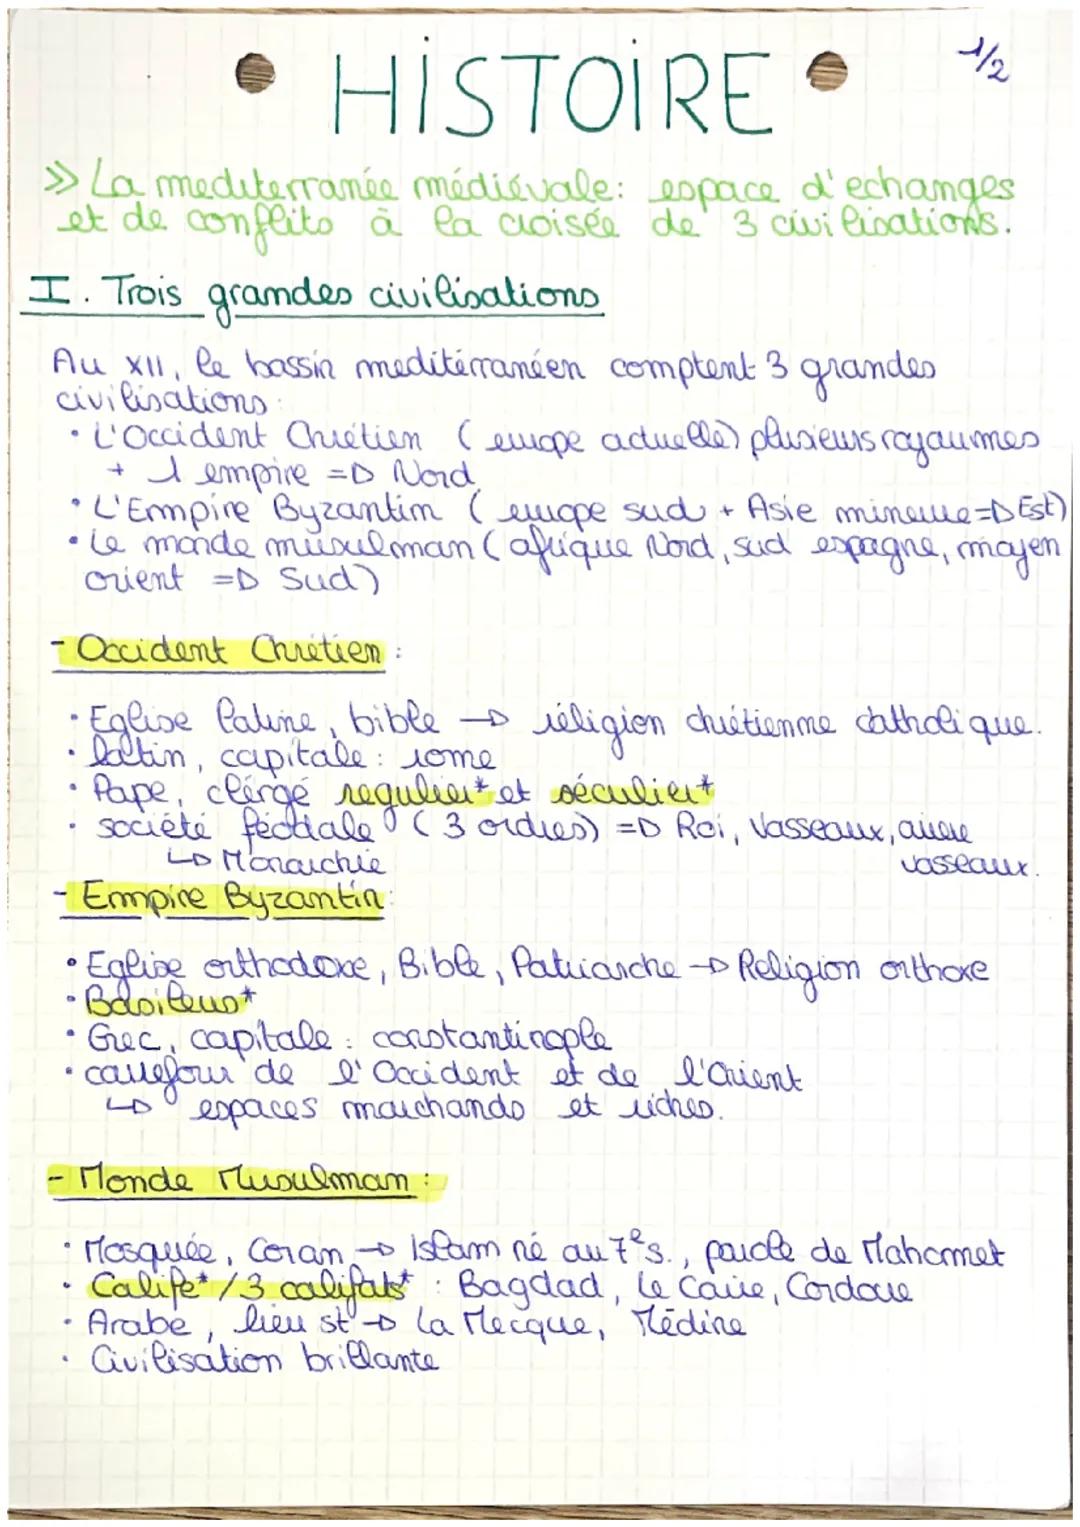 HISTOIRE
1/2
>> La mediterranée médiévale: espace d'echanges
et de conflits à la croisée de 3 civilisations.
I. Trois grandes civilisations
Au XII, le bassin meditérranéen comptent 3 grandes
civilisations:
• L'Occident Chrétien (europe actuelle) plusieurs royaumes
+ 1 empire => Nord
• L'Empire Byzantin (europe sud + Asie mineure => Est)
• Le monde musulman (afrique Nord, sud espagne, moyen
orient => Sud)
- Occident Chrétien :
• Eglise latine, bible → réligion chrétienne catholique.
• latin, capitale: rome
• Pape, clérgé regulier* et séculier*
• société féodale (3 ordres) => Roi, Vasseaux, arrière
vasseaux.
↳ Monarchie
- Empire Byzantin:
• Eglise orthodoxe, Bible, Patriarche → Religion orthoxe
• Basileus*
• Grec, capitale : constantinople
• carrefour de l'Occident et de l'Orient
↳ espaces marchands et riches.
- Monde Musulman :
• Mosquée, Coran → Islam né au 7e s., parole de Mahomet
• Calife* / 3 califats* : Bagdad, Le Caire, Cordoue
• Arabe, lieu st → La Mecque, Médine
• Civilisation brillante